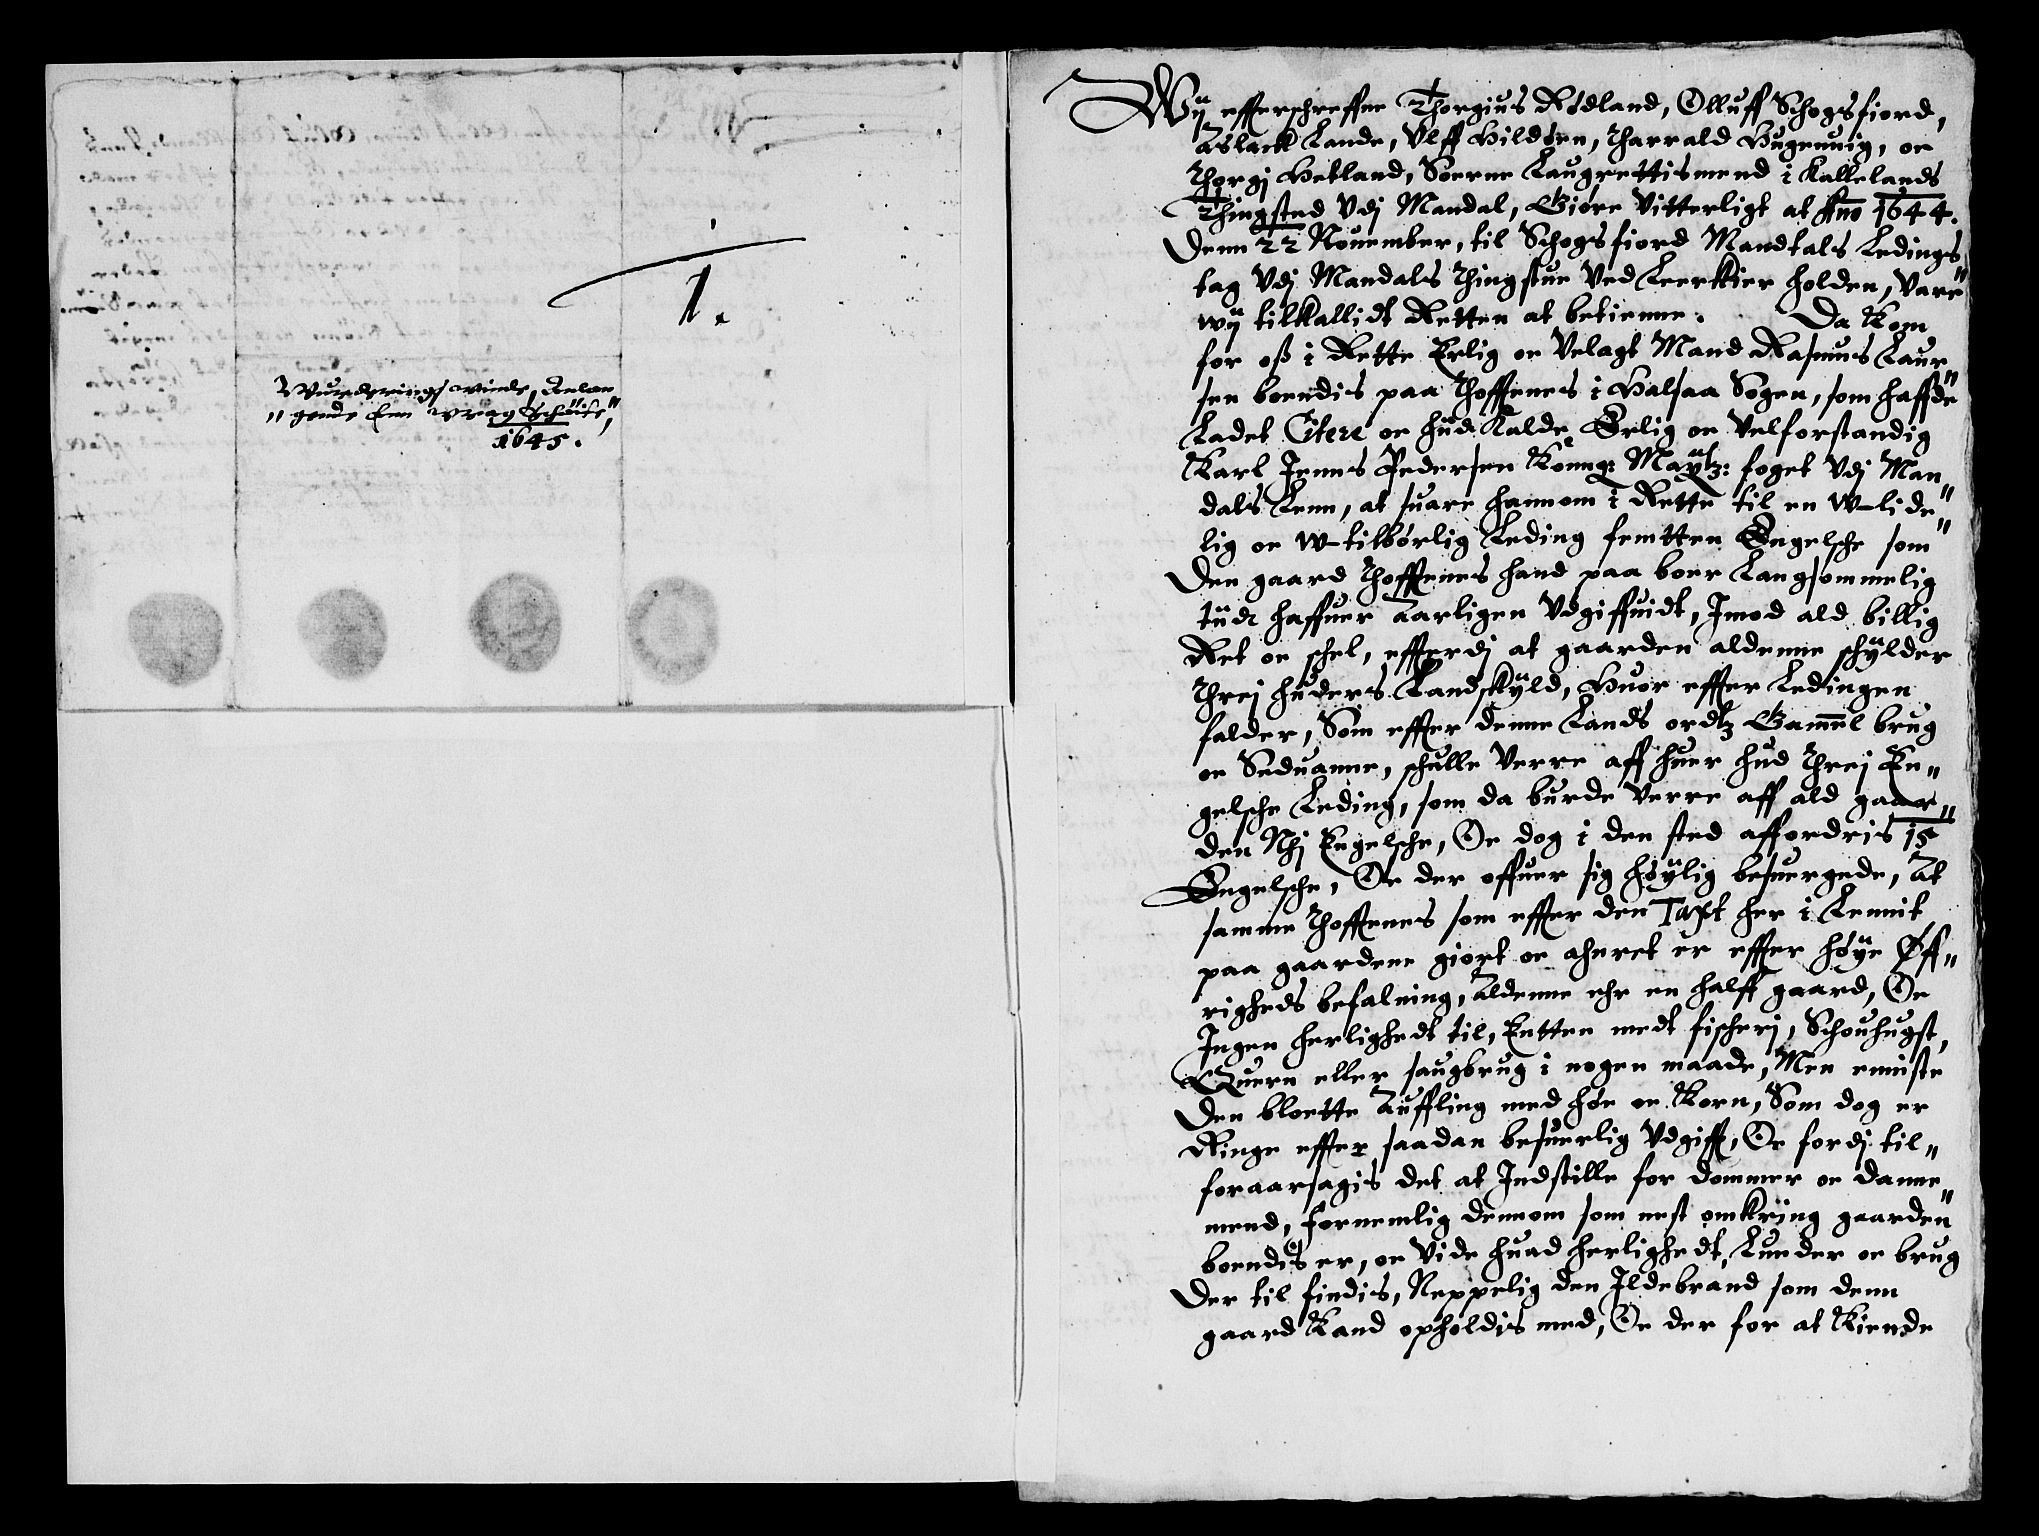 1.
Wurderings winde, Anlan
„gende Een wrag Schude,"
1645.
Wÿ effterschreffne Thorgius Rødland, Olluff Schogsfiord,
Aslack Lande, Vlff Hildøen, Tharrald Hugenuig, oc
Thorgj Hetland, Soerne Laugrettismend i Kallelands
Thingsted Vdj Mandal, Giøre Vitterligt at Ano 1644.
Denn 22 Nouember, til Schogsfiord Mandtals Ledings
tag Vdj Mandals Thingstue Ved Leerkier holden, Vare
wÿ tilkallidt Retten at betienne. Da kom
for oss i Rette Erlig oc Velagt Mand Rasmus Laur„
sen boendis paa Thoffenes i Halsaa Sogen, som haffde
Ladet Citere oc hid Kalde, Erlig oc Velforstandig
Karl Jenns Pedersen Konng: Maÿtz: foget Vdj Man„
dals Lenn, at suare hannom i Rette til en W-lide„
lig oc W-tilbørlig Leding femtten Engelsche som
Den gaard Thoffenes hand paa boer Langsommelig
tiidt haffuer Aarligen Vdgiffuidt, Imod ald billig
Ret oc schel, effterdj at gaarden aldenne schÿlder
Threj huders Landskÿld, Huor effter Ledingen
falder, Som effter denne Lands ordtz Gammel brug
oc Seduanne, schulle Verre aff huer hud Threj En„
gelsche Leding, som da burde Verre aff ald gaar„
den Nhj Engelsche, Oc dog i den sted affordris 15
Engelsche, Oc der offuer sig høÿlig besuergede, At
samme Thoffenes som effter den Taxt her i Lennit
paa gaardene giort oc ahnret er effter høÿe Øff„
righeds befalning, Aldenne ehr en halff gaard, Oc
Ingen herlighedt til, Entten medt fischerj, Schouhugst,
Quern eller saugbrug i nogen maade, Men eeniste
Den bloette Auffling med høe oc Korn, Som dog er
Ringe effter saadan besuerlig Vdgifft, Oc fordj til„
foraarsagis det at Indstille for dommer oc danne„
mend, fornemlig dennom som nest omkring gaarden
boendis er, oc Vide huad herlighedt, Lunder oc brug
Der til findis, Neppelig den Ildebrand som denn
gaard Kand opholdis med, Oc der for at Kiende